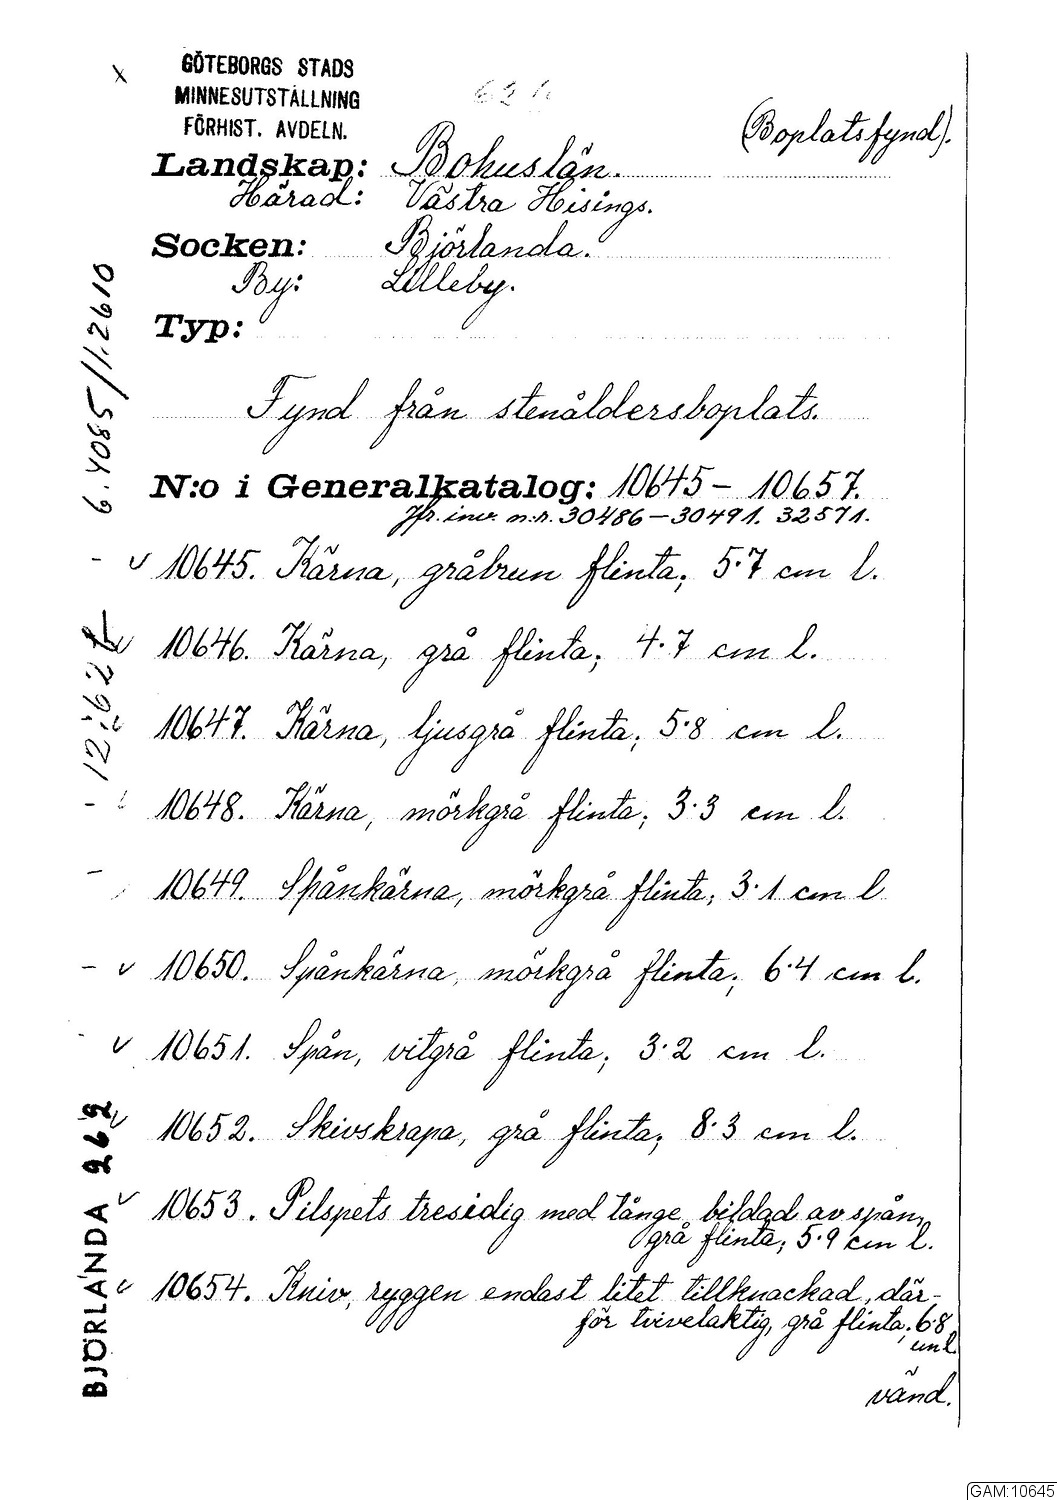 GÖTEBORGS STADS
MINNESUTSTÄLLNING
FÖRHIST. AVDELN.
(Boplatsfynd).
Landskap: Bohuslän.
Härad: Västra Hisings.
Socken: Björlanda.
By: Lilleby.
Typ:
Fynd från stenåldersboplats.
N:o i Generalkatalog: 10645 – 10657.
Jfr. inv. n:r. 30486–30491. 32571.
10645. Kärna, gråbrun flinta; 5·7 cm l.
10646. Kärna, grå flinta; 4·7 cm l.
10647. Kärna, ljusgrå flinta; 5·8 cm l.
10648. Kärna, mörkgrå flinta; 3·3 cm l.
10649. Spånkärna, mörkgrå flinta; 3·1 cm l
10650. Spånkärna, mörkgrå flinta; 6·4 cm l.
10651. Spån, vitgrå flinta; 3·2 cm l.
10652. Skivskrapa, grå flinta; 8·3 cm l.
10653. Pilspets tresidig med tånge, bildad av spån,
grå flinta; 5·9 cm l.
10654. Kniv, ryggen endast litet tillknackad, där-
för tvivelaktig, grå flinta; 6·8
cm l.
vänd.
6.4085/1.2610
BJÖRLANDA 262
GAM:10645